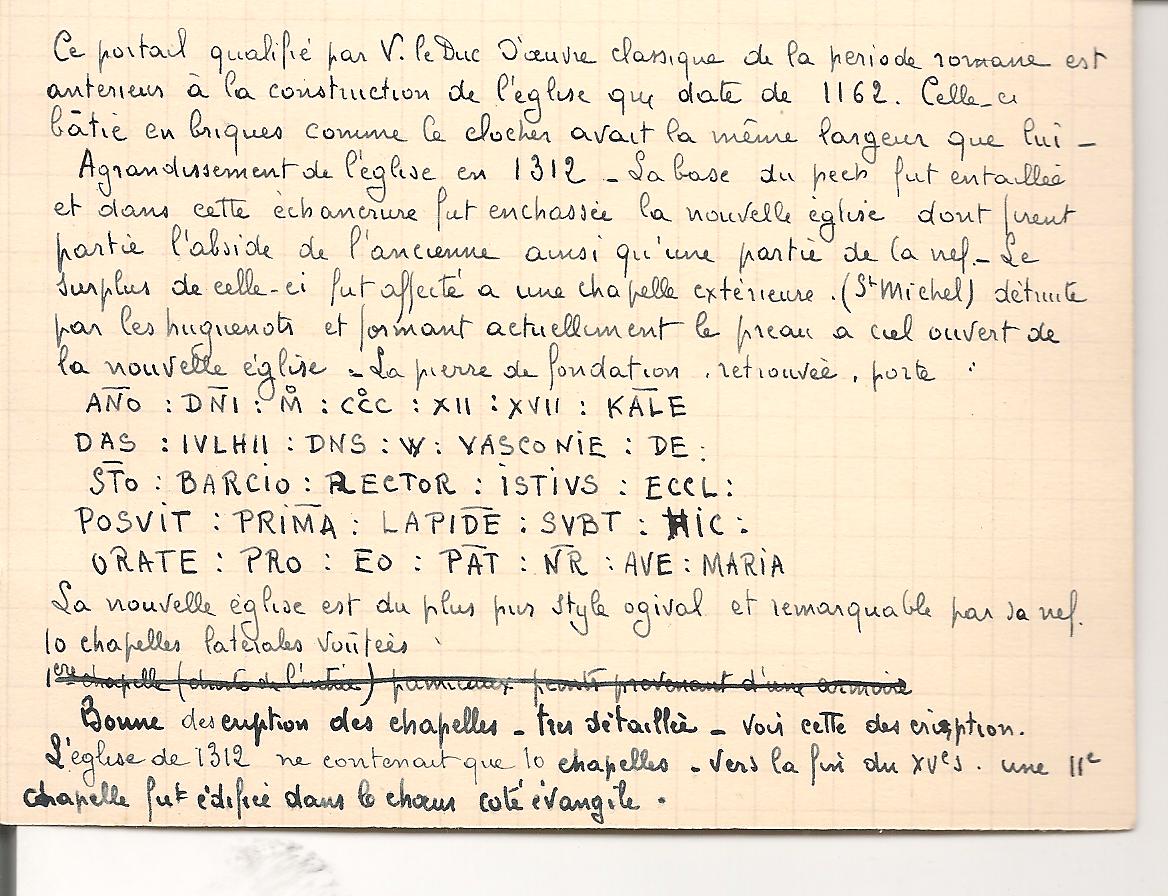 Ce portail qualifié par V. le Duc d'œuvre classique de la periode romane est
anterieur à la construction de l'église que date de 1162. Celle-ci
bâtie en briques comme le clocher avait la même largeur que lui -
Agrandissement de l'église en 1312 - La base du pech fut entaillée
et dans cette échancrure fut enchassée la nouvelle église dont firent
partie l'abside de l'ancienne ainsi qu'une partie de la nef. - Le
surplus de celle-ci fut affecté a une chapelle extérieure. (St Michel) détruite
par les huguenots et formant actuellement le preau a ciel ouvert de
la nouvelle église - La pierre de fondation, retrouvée, porte :
AN̄O : DN̄I : M̊ : CC̊C : XII : XVII : KAL̄E
DAS : IVLHII : DNS : W : VASCONiE : DE :
ST̄O : BARCiO : RECTOR : iSTIVS : ECCL :
POSViT : PRIM̄A : LAPID̄E : SVBT : HiC :
ORATE : PRO : EO : PĀT : N̄R : AVE : MARiA
La nouvelle église est du plus pur style ogival et remarquable par sa nef.
10 chapelles latérales voûtées
1ère chapelle (droite de l'entrée) panneaux peints provenant d'une armoire
Bonne description des chapelles - tres détaillée - voir cette description.
L'église de 1312 ne contenait que 10 chapelles - vers la fin du XVe s. une 11e
chapelle fut édifiée dans le chœur coté évangile.